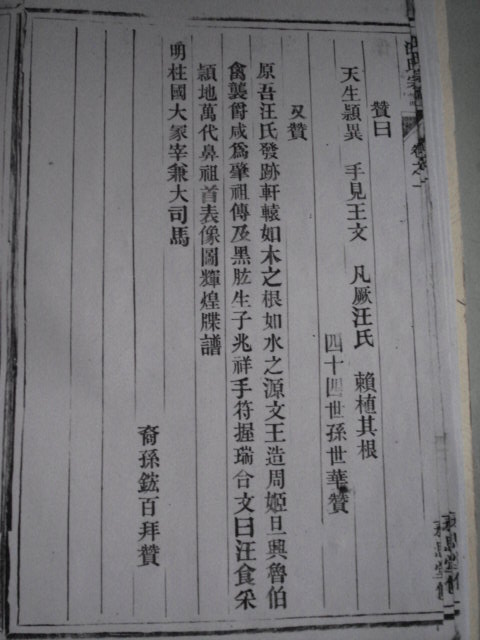 贊曰
天生頴異　手見王文　凡厥汪氏　賴植其根
四十四世孫世華贊
又贊
原吾汪氏發跡軒轅如木之根如水之源文王造周姬旦興魯伯
禽襲爵咸爲肇祖傳及黑肱生子兆祥手符握瑞合文曰汪食采
頴地萬代鼻祖首表像圖輝煌牒譜
明柱國大冢宰兼大司馬
裔孫鋐百拜贊